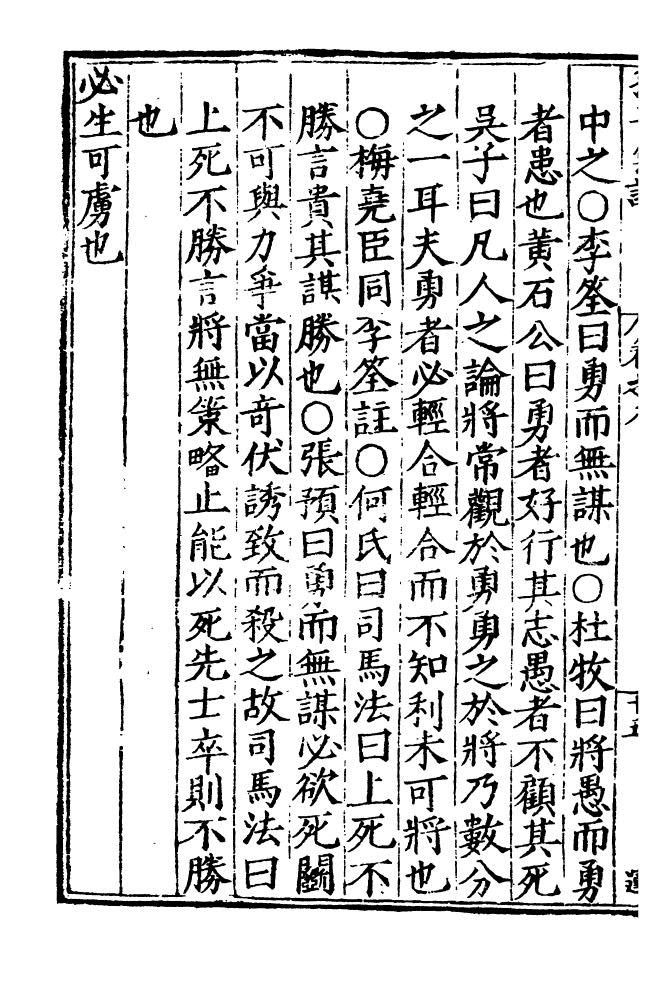 中之〇李筌曰勇而無謀也〇杜牧曰將愚而勇
者患也黃石公曰勇者好行其志愚者不顧其死
吳子曰凡人之論將常觀於勇勇之於將乃數分
之一耳夫勇者必輕合輕合而不知利未可將也
〇梅堯臣同李筌註〇何氏曰司馬法曰上死不
勝言貴其謀勝也〇張預曰勇而無謀必欲死鬭
不可與力爭當以奇伏誘致而殺之故司馬法曰
上死不勝言將無策略止能以死先士卒則不勝
也
必生可虜也